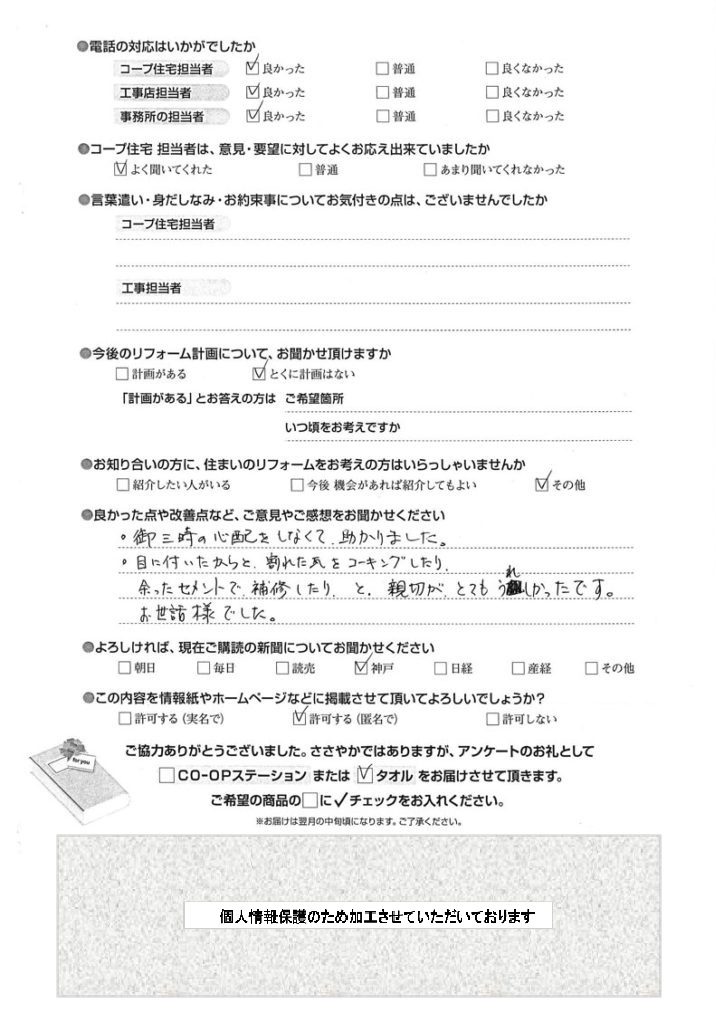 ●電話の対応はいかがでしたか
コープ住宅担当者 ☑良かった □普通 □良くなかった
工事店担当者 ☑良かった □普通 □良くなかった
事務所の担当者 ☑良かった □普通 □良くなかった
●コープ住宅 担当者は、意見・要望に対してよくお応え出来ていましたか
☑よく聞いてくれた □普通 □あまり聞いてくれなかった
●言葉遣い・身だしなみ・お約束事についてお気付きの点は、ございませんでしたか
コープ住宅担当者
工事担当者
●今後のリフォーム計画について、お聞かせ頂けますか
□計画がある ☑とくに計画はない
「計画がある」とお答えの方は ご希望箇所
いつ頃をお考えですか
●お知り合いの方に、住まいのリフォームをお考えの方はいらっしゃいませんか
□紹介したい人がいる □今後 機会があれば紹介してもよい ☑その他
●良かった点や改善点など、ご意見やご感想をお聞かせください
・御三時の心配をしなくて、助かりました。
・目に付いたからと、割れた瓦をコーキングしたり、
余ったセメントで、補修したり、と、親切が、とてもうれしかったです。
お世話様でした。
●よろしければ、現在ご購読の新聞についてお聞かせください
□朝日 □毎日 □読売 ☑神戸 □日経 □産経 □その他
●この内容を情報紙やホームページなどに掲載させて頂いてよろしいでしょうか?
□許可する(実名で) ☑許可する(匿名で) □許可しない
for you
ご協力ありがとうございました。ささやかではありますが、アンケートのお礼として
□CO-OPステーション または ☑タオル をお届けさせて頂きます。
ご希望の商品の□に✓チェックをお入れください。
※お届けは翌月の中旬頃になります。ご了承ください。
個人情報保護のため加工させていただいております